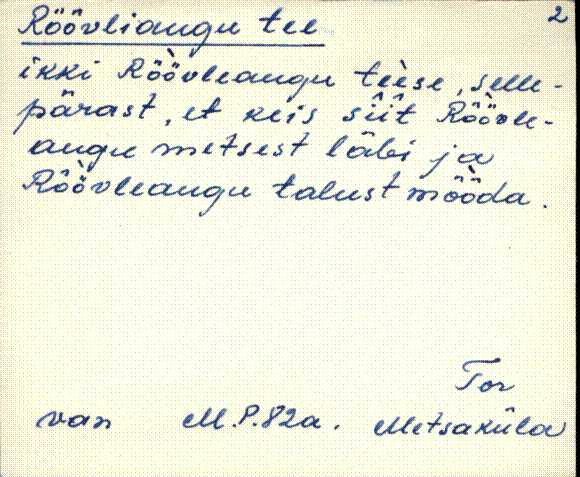 2
Röövliangu tee
ikki Röö̀vleangu teèse, selle-
pärast, et keis siit Röö̀vle-
angu metsest läbi ja
Röö̀vleangu talust möö̀da.
Tor
van M.P. 82a. Metsaküla